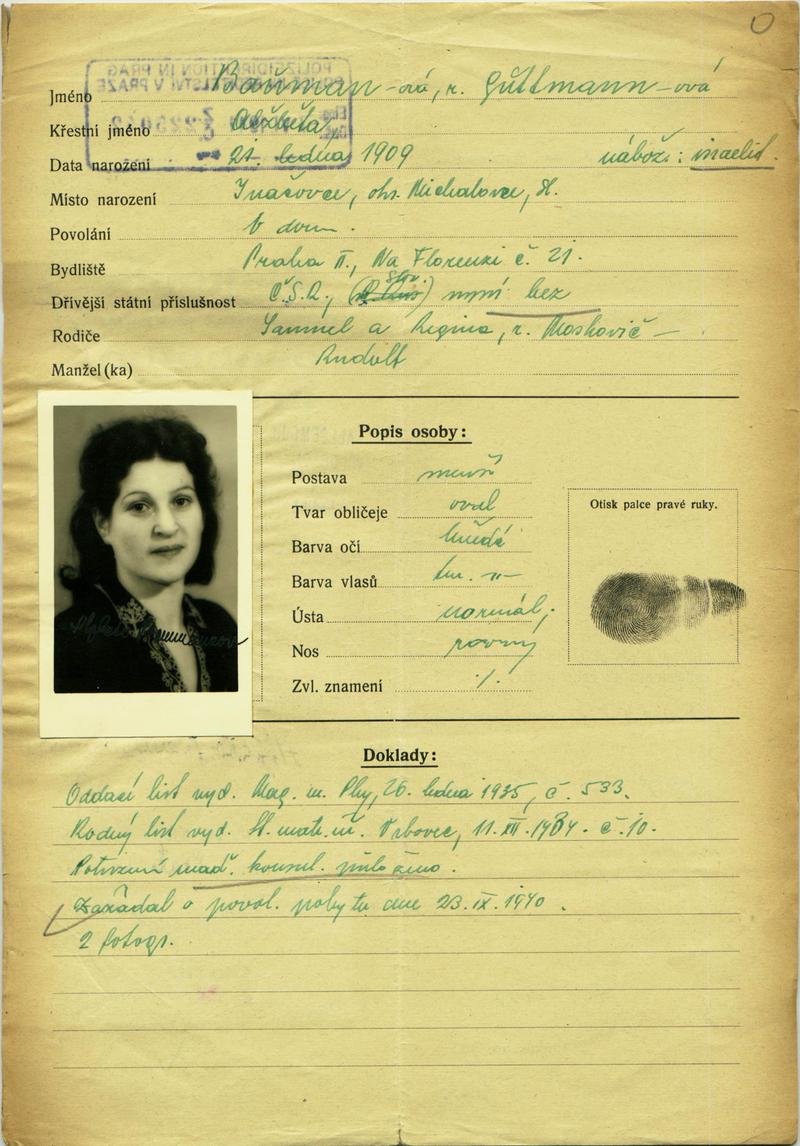 POLIZEIDIREKTION IN PRAG
Jméno Baŭman-ová, r. Gŭttmann-ová
Křestní jméno Alžběta
Data narození 21. ledna 1909 nábož.: israelit.
Místo narození Inačovce, okr. Michalovce, Sl.
Povolání v dom.
Bydliště Praha II., Na Florenci č. 21.
Dřívější státní příslušnost Č.S.R., (Slov.) nyní bez
Rodiče Samuel a Regina, r. Moskovič
Manžel (ka) Rudolf
Popis osoby:
Postava menší
Tvar obličeje ovál
Barva očí hnědé
Barva vlasů tm. "
Ústa normál.
Nos rovný
Zvl. znamení ·/.
Otisk palce pravé ruky.
Doklady:
Oddací list vyd. Mag. m. Phy, 26. ledna 1935, č. 533.
Rodný list vyd. St. matr. úř. Vrbovec, 11. XII. 1934. č. 10.
Potvrzení maď. konsul. přiloženo.
Zažádal o povol. pobytu dne 23. IX. 1940.
2 fotogr.